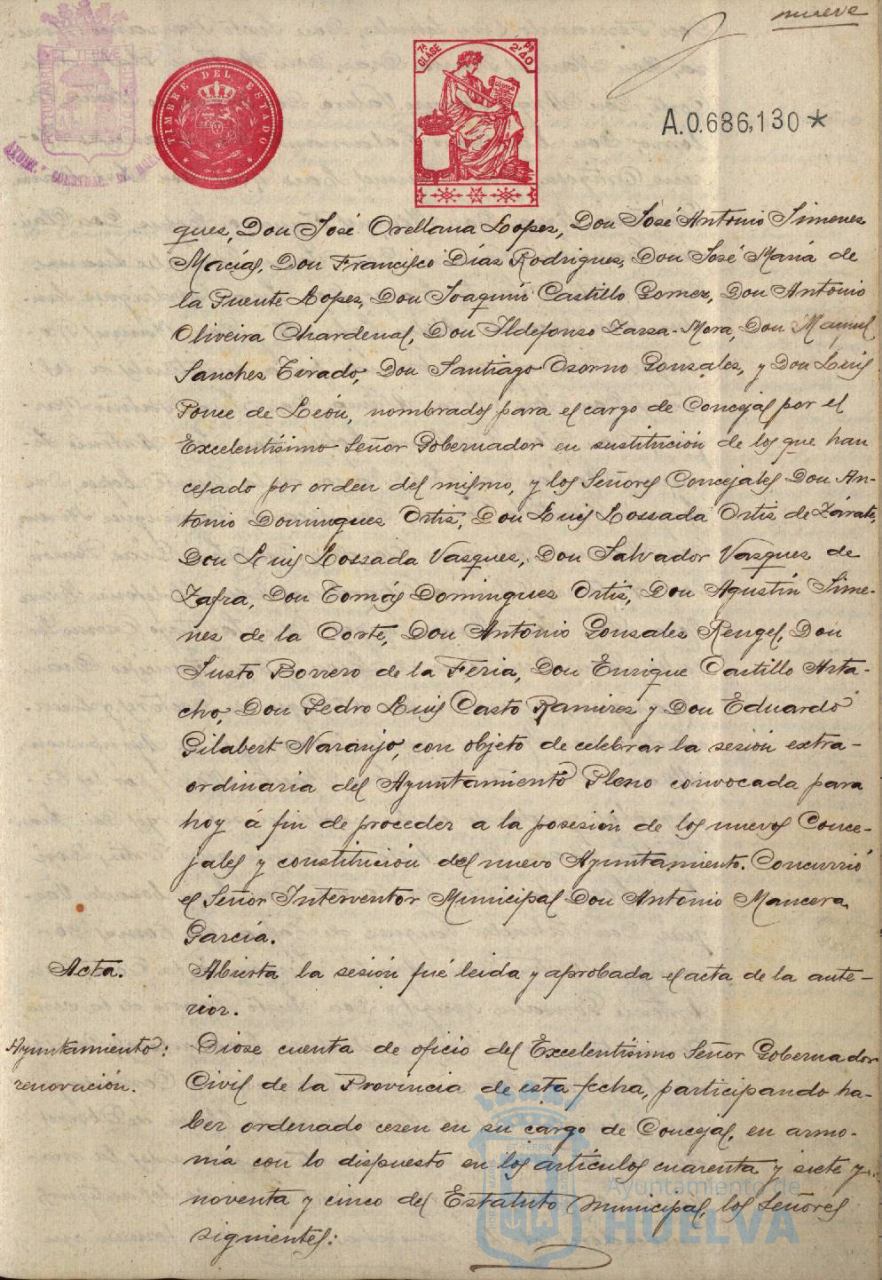 nueve
TIMBRE DEL ESTADO
7ª CLASE
2'40 Ps
A.0.686,130 *
ques, Don José Orellana Lopes, Don José Antonio Jimenes
Macías, Don Francisco Días Rodrigues, Don José María de
la Puente Lopes, Don Joaquín Castillo Gomez, Don Antonio
Oliveira Chardenal, Don Ildefonso Zarsa-Mora, Don Manuel
Sanches Tirado, Don Santiago Osorno Gonsales, y Don Luis
Ponce de León, nombrados para el cargo de Concejal por el
Excelentísimo Señor Gobernador en sustitución de los que han
cesado por orden del mismo, y los Señores Concejales Don An-
tonio Domingues Ortis, Don Luis Lossada Ortis de Zárate,
Don Luis Lossada Vasques, Don Salvador Vasques de
Zafra, Don Tomás Domingues Ortis, Don Agustín Jime-
nes de la Corte, Don Antonio Gonsales Rengel, Don
Justo Borrero de la Feria, Don Enrique Castillo Arta-
cho, Don Pedro Luis Casto Ramires y Don Eduardo
Gilabert Naranjo, con objeto de celebrar la sesión extra-
ordinaria del Ayuntamiento Pleno convocada para
hoy á fin de proceder a la posesión de los nuevos Conce-
jales y constitución del nuevo Ayuntamiento. Concurrió
el Señor Interventor Municipal Don Antonio Mancera
García.
Acta. Abierta la sesión fué leida y aprobada el acta de la ante-
rior.
Ayuntamiento: Diose cuenta de oficio del Excelentísimo Señor Gobernador
renovación. Civil de la Provincia de esta fecha, participando ha-
ber ordenado cesen en su cargo de Concejal, en armo-
nía con lo dispuesto en los artículos cuarenta y siete y
noventa y cinco del Estatuto Municipal, los Señores
siguientes:
Ayuntamiento de
HUELVA